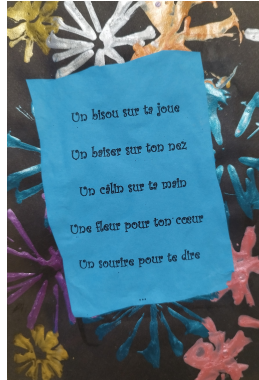 Un bisou sur ta joue
Un baiser sur ton nez
Un câlin sur ta main
Une fleur pour ton cœur
Un sourire pour te dire
...